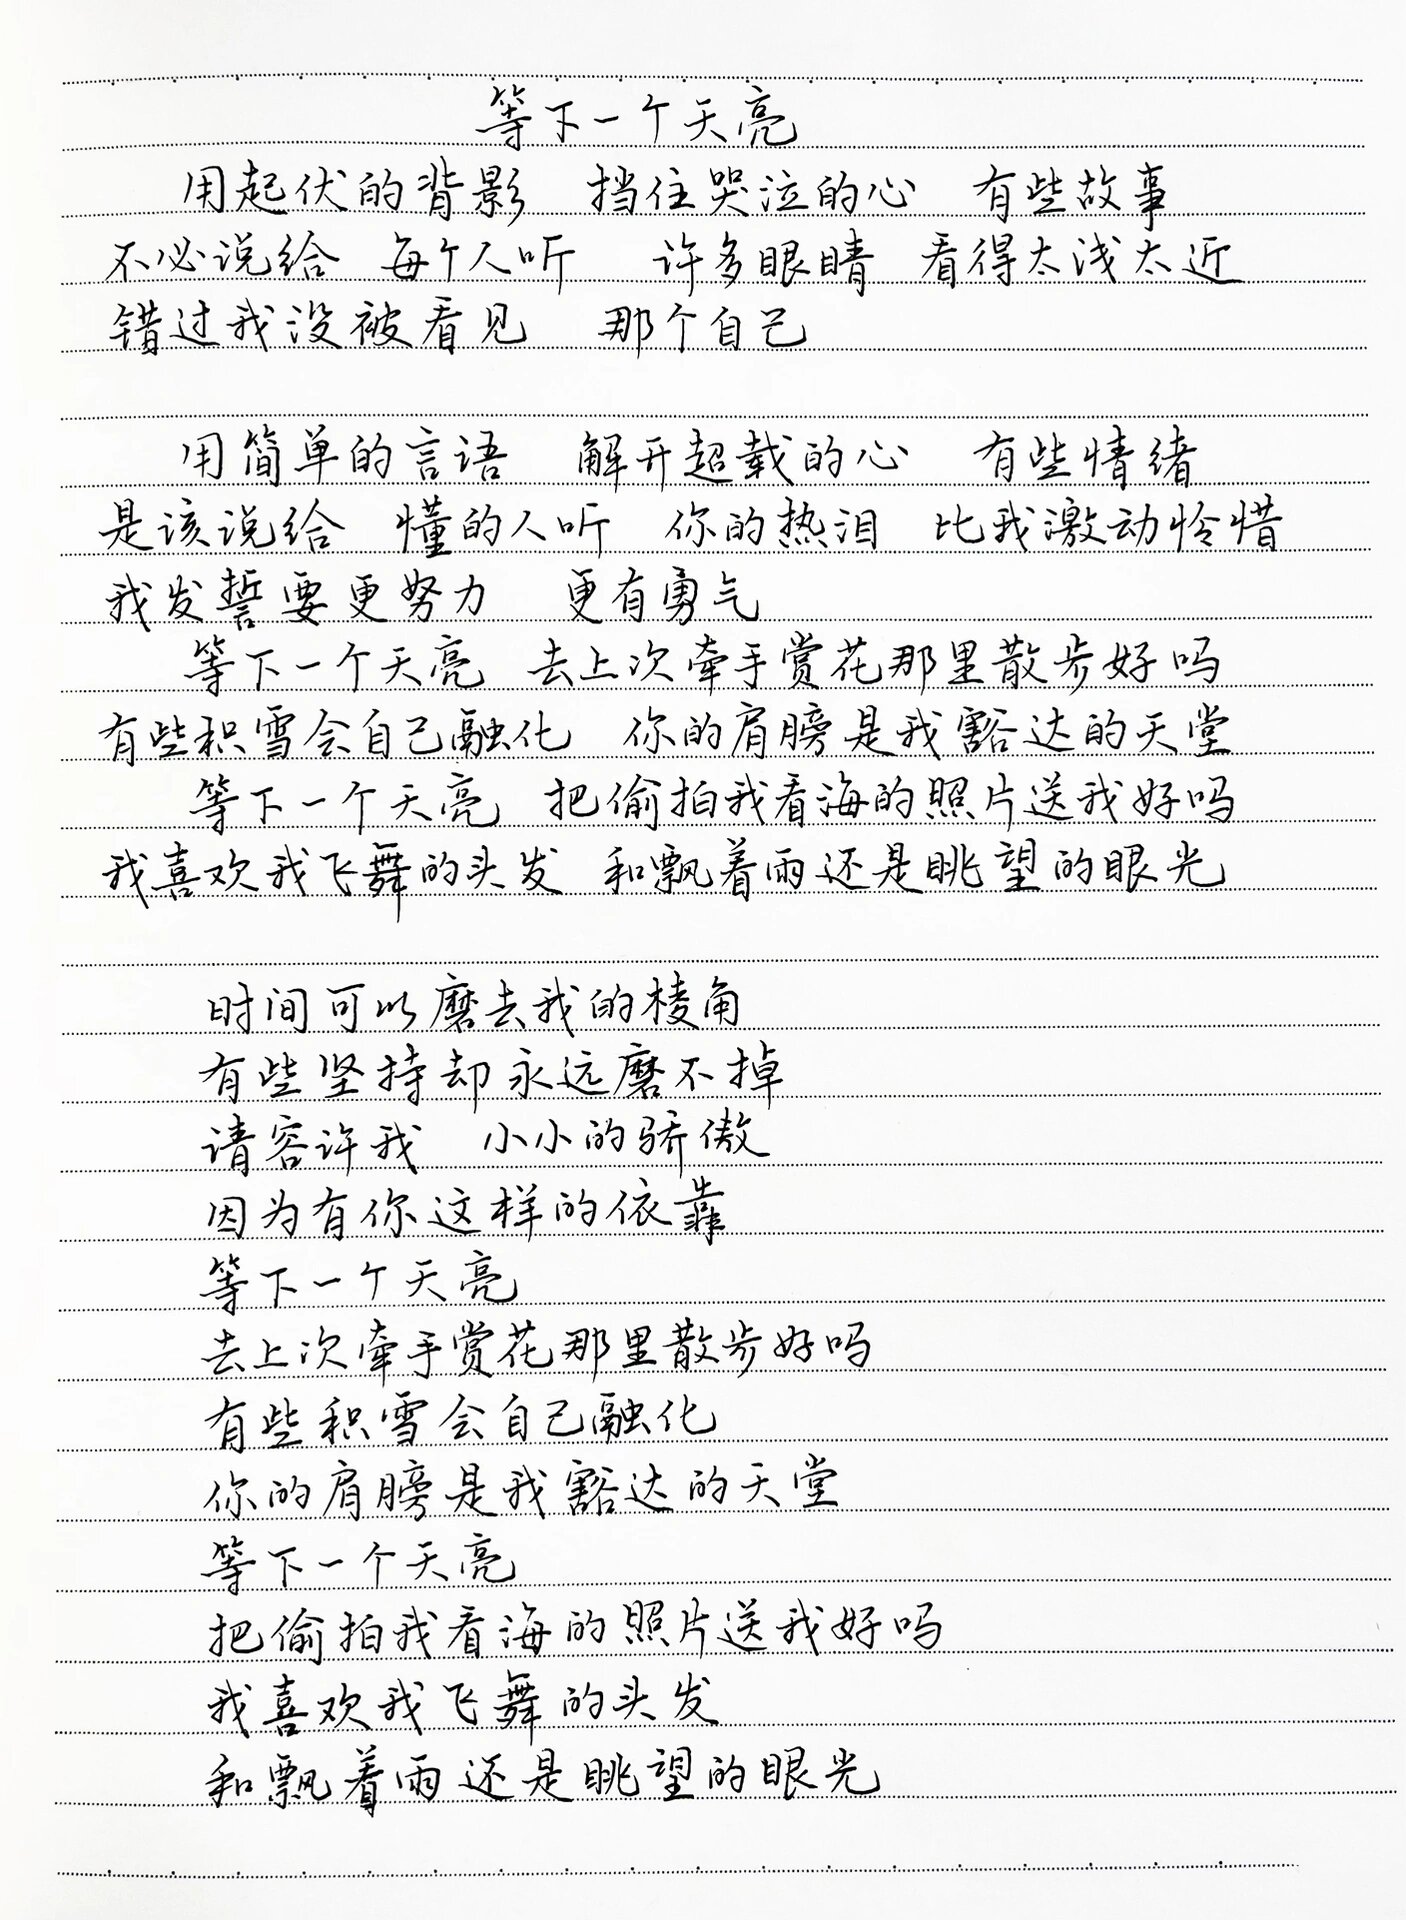 等下一个天亮
用起伏的背影 挡住哭泣的心 有些故事
不必说给 每个人听 许多眼睛 看得太浅太近
错过我没被看见 那个自己
用简单的言语 解开超载的心 有些情绪
是该说给 懂的人听 你的热泪 比我激动怜惜
我发誓要更努力 更有勇气
等下一个天亮 去上次牵手赏花那里散步好吗
有些积雪会自己融化 你的肩膀是我豁达的天堂
等下一个天亮 把偷拍我看海的照片送我好吗
我喜欢我飞舞的头发 和飘着雨还是眺望的眼光
时间可以磨去我的棱角
有些坚持却永远磨不掉
请容许我 小小的骄傲
因为有你这样的依靠
等下一个天亮
去上次牵手赏花那里散步好吗
有些积雪会自己融化
你的肩膀是我豁达的天堂
等下一个天亮
把偷拍我看海的照片送我好吗
我喜欢我飞舞的头发
和飘着雨还是眺望的眼光